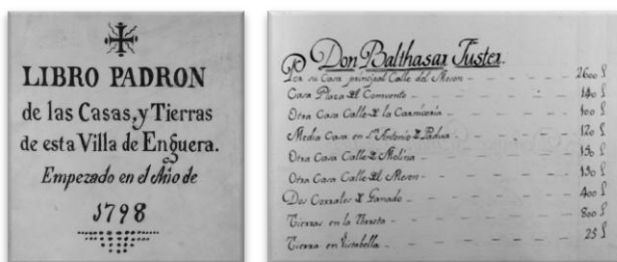 LIBRO PADRON
de las Casas, y Tierras
de esta Villa de Enguera.
Empezado en el Año de
1798
Don Balthasar Fuster.
Por su Casa principal Calle del Meson - - - - 2600 £
Casa Plaza del Convento - - - - 140 £
Otra Casa Calle de la Carniceria - - - - 100 £
Media Casa en Sn. Antonio de Padua - - - - 120 £
Otra Casa Calle de Molina - - - - 150 £
Otra Casa Calle del Meson - - - - 150 £
Dos Corrales de Ganado - - - - 400 £
Tierras en la - - - - 800 £
Tierra en Vistabella - - - - 25 £